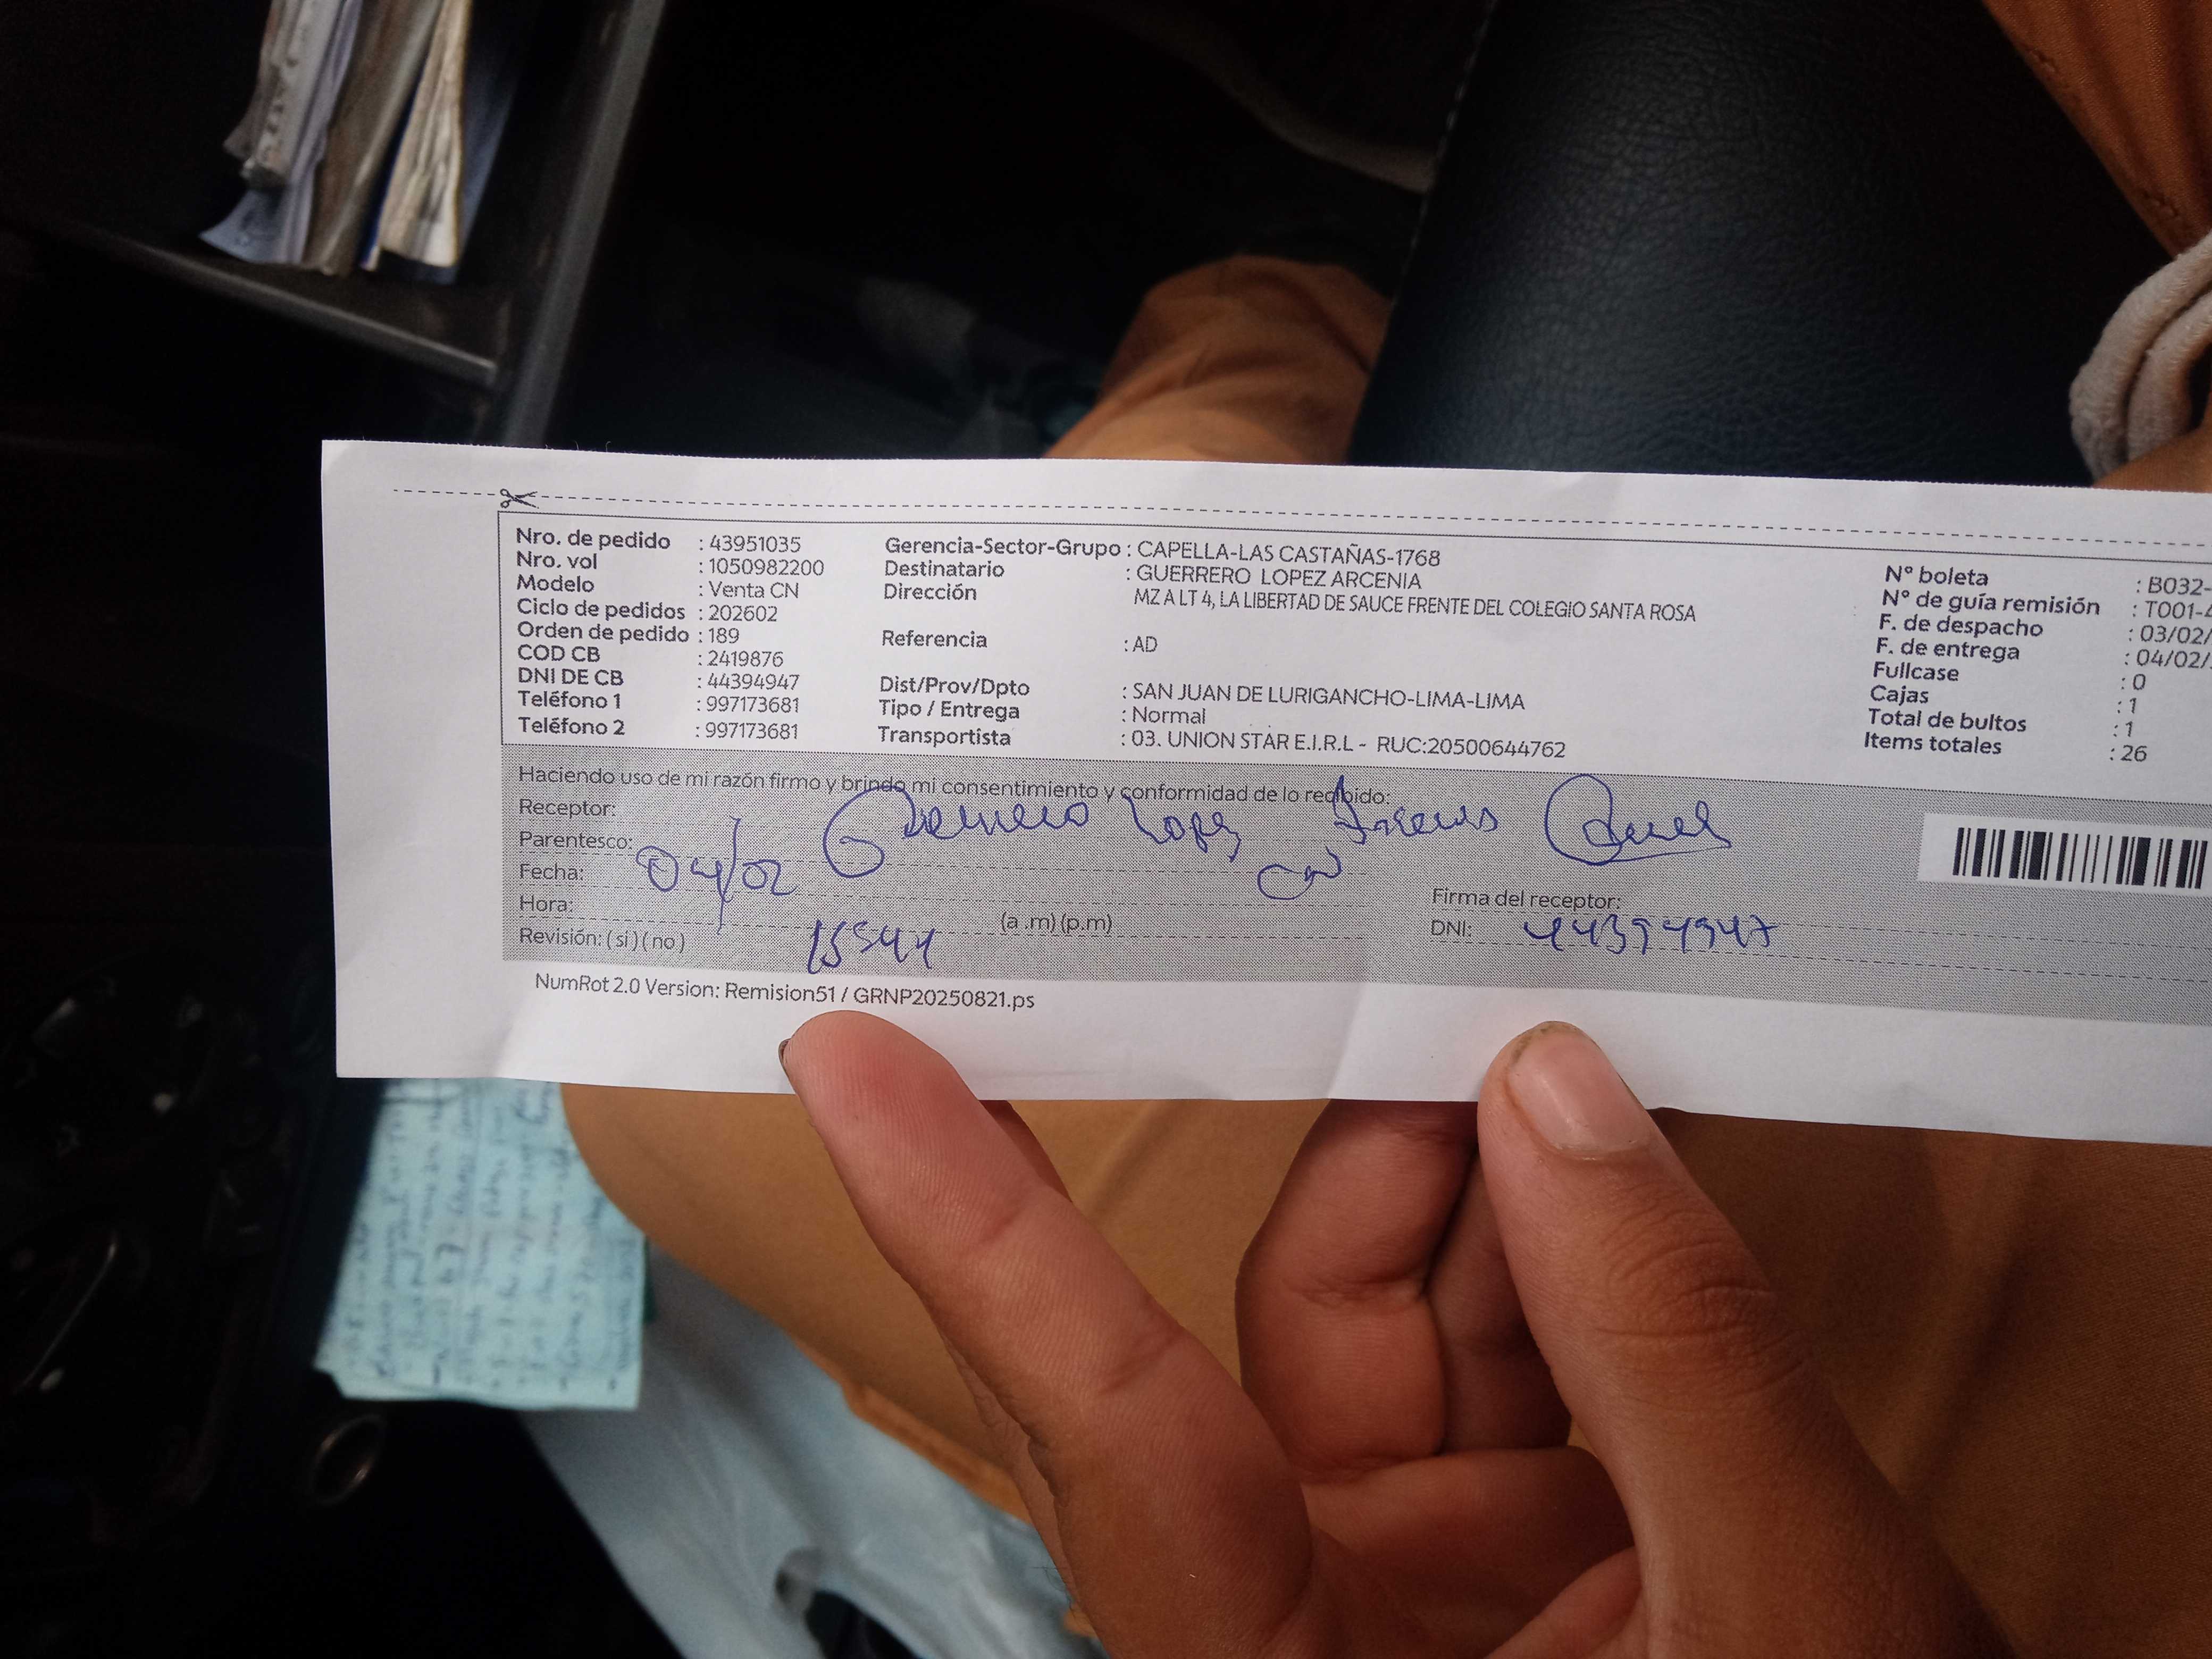 Nro. de pedido : 43951035
Nro. vol : 1050982200
Modelo : Venta CN
Ciclo de pedidos : 202602
Orden de pedido : 189
COD CB : 2419876
DNI DE CB : 44394947
Teléfono 1 : 997173681
Teléfono 2 : 997173681
Gerencia-Sector-Grupo : CAPELLA-LAS CASTAÑAS-1768
Destinatario : GUERRERO LOPEZ ARCENIA
Dirección MZ A LT 4, LA LIBERTAD DE SAUCE FRENTE DEL COLEGIO SANTA ROSA
Referencia : AD
Dist/Prov/Dpto : SAN JUAN DE LURIGANCHO-LIMA-LIMA
Tipo / Entrega : Normal
Transportista : 03. UNION STAR E.I.R.L - RUC:20500644762
N° boleta : B032-
N° de guía remisión : T001-4
F. de despacho : 03/02/
F. de entrega : 04/02/
Fullcase : 0
Cajas : 1
Total de bultos : 1
Items totales : 26
Haciendo uso de mi razón firmo y brindo mi consentimiento y conformidad de lo recibido:
Receptor: Lopez
Parentesco:
Fecha: 04/02
Hora: (a .m) (p.m)
Revisión: ( si ) ( no )
Firma del receptor:
DNI: 44394947
NumRot 2.0 Version: Remision51 / GRNP20250821.ps